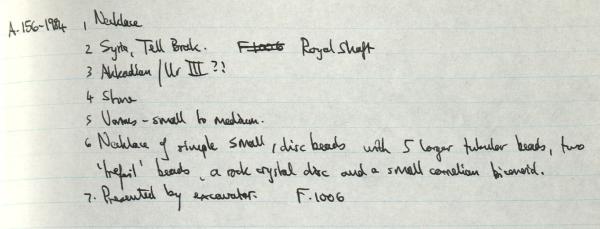 A.156-1984 1, Necklace
2 Syria, Tell Brak. F1006 Royal Shaft
3 Akkadian / Ur III ?!
4 Stone
5 Various - small to medium.
6 Necklace of simple small, disc beads with 5 larger tubular beads, two
'trefoil' beads, a rock crystal disc and a small carnelian biconoid.
7. Presented by excavator. F.1006